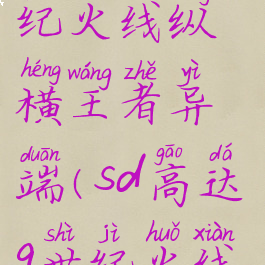 纪火线纵
héng wáng zhě yì
横王者异
duān gāo dá
端(sd高达
shì jì huǒ xiàn